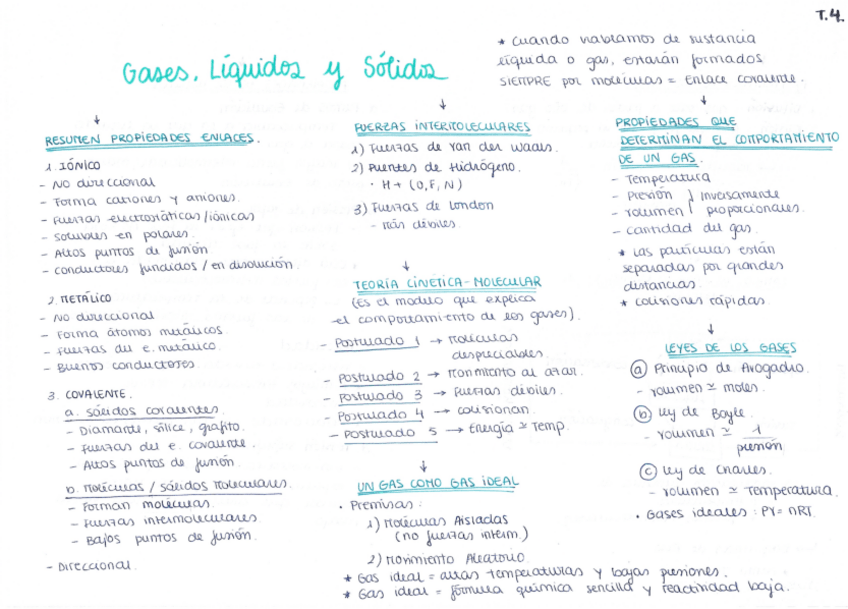 T.4.
Gases, Líquidos y Sólidos
* Cuando hablamos de sustancia
líquida o gas, estarán formados
SIEMPRE por moléculas = enlace covalente.
RESUMEN PROPIEDADES ENLACES.
1. IÓNICO
- No direccional
- Forma cationes y aniones.
- Fuerzas electrostáticas/iónicas
- Solubles en polares.
- Altos puntos de fusión
- Conductores fundidos / en disolución.
2. METÁLICO
- No direccional
- Forma átomos metálicos.
- Fuerzas del e. metálico.
- Buenos conductores
3. COVALENTE.
a. Sólidos covalentes.
- Diamante, sílice, grafito.
- Fuerzas del e. covalente.
- Altos puntos de fusión.
b. Moléculas / sólidos moleculares.
- Forman moléculas.
- Fuerzas intermoleculares
- Bajos puntos de fusión.
- Direccional.
FUERZAS INTERMOLECULARES
1) Fuerzas de Van der Waals.
2) Puentes de Hidrógeno.
· H + (O, F, N)
3) Fuerzas de London
- Más débiles.
TEORÍA CINÉTICA-MOLECULAR
(Es el modelo que explica
el comportamiento de los gases).
- Postulado 1 → Moléculas
despreciables.
- Postulado 2 → Movimiento al azar.
- Postulado 3 → Fuerzas débiles.
- Postulado 4 → colisionan.
- Postulado 5 → Energía ≃ Temp.
UN GAS COMO GAS IDEAL
· Premisas:
1) Moléculas Aisladas
(no fuerzas interm.)
2) Movimiento Aleatorio
* Gas ideal = altas temperaturas y bajas presiones.
* Gas ideal = fórmula química sencilla y reactividad baja.
PROPIEDADES QUE
DETERMINAN EL COMPORTAMIENTO
DE UN GAS.
- Temperatura
- Presión } Inversamente
- Volumen } proporcionales.
- cantidad del gas.
* Las partículas están
separadas por grandes
distancias.
* Colisiones rápidas.
LEYES DE LOS GASES
a Principio de Avogadro.
- Volumen ≃ moles.
b Ley de Boyle.
- Volumen ≃ 1
presión
c Ley de Charles.
- Volumen ≃ Temperatura.
· Gases ideales: PV = nRT.